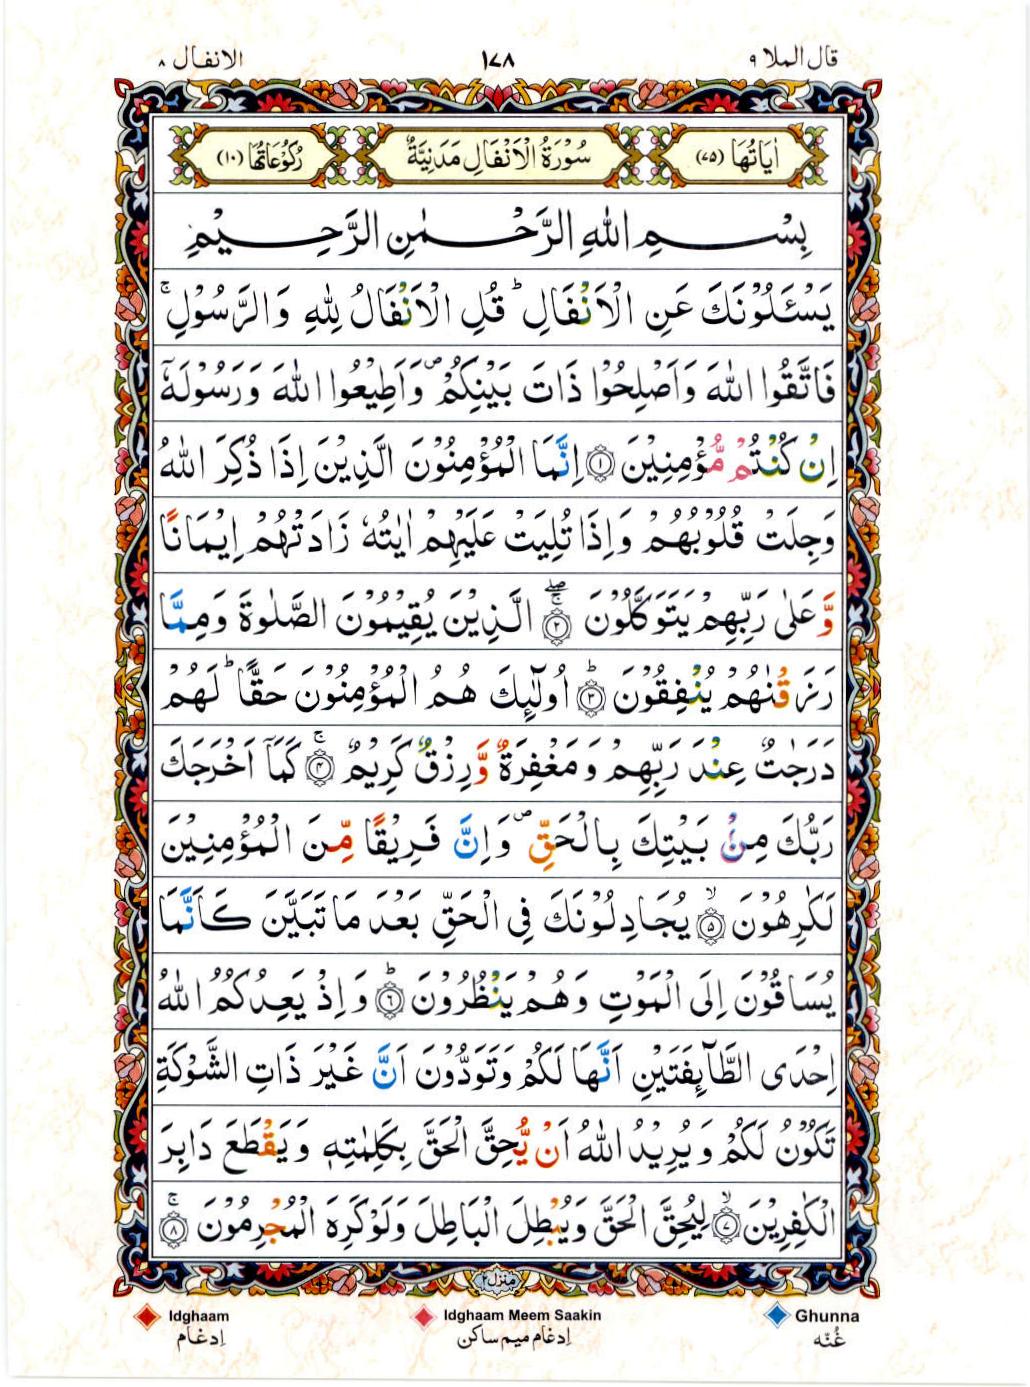 قال الملا ٩
١٧٨
الانفال ٨
اٰيَاتُهَا (٧٥)
سُوْرَةُ الْاَنْفَالِ مَدَنِيَّةٌ
رُكُوْعَاتُهَا (١٠)
بِسْمِ اللّٰهِ الرَّحْمٰنِ الرَّحِيْمِ
يَسْـَٔلُوْنَكَ عَنِ الْاَنْفَالِ ؕ قُلِ الْاَنْفَالُ لِلّٰهِ وَالرَّسُوْلِ ۚ
فَاتَّقُوا اللّٰهَ وَاَصْلِحُوْا ذَاتَ بَيْنِكُمْ ۪ وَاَطِيْعُوا اللّٰهَ وَرَسُوْلَهٗۤ
اِنْ كُنْتُمْ مُّؤْمِنِيْنَ ﴿١﴾ اِنَّمَا الْمُؤْمِنُوْنَ الَّذِيْنَ اِذَا ذُكِرَ اللّٰهُ
وَجِلَتْ قُلُوْبُهُمْ وَاِذَا تُلِيَتْ عَلَيْهِمْ اٰيٰتُهٗ زَادَتْهُمْ اِيْمَانًا
وَّعَلٰى رَبِّهِمْ يَتَوَكَّلُوْنَ ﴿٢﴾ ۖۚ الَّذِيْنَ يُقِيْمُوْنَ الصَّلٰوةَ وَمِمَّا
رَزَقْنٰهُمْ يُنْفِقُوْنَ ﴿٣﴾ ؕ اُولٰٓئِكَ هُمُ الْمُؤْمِنُوْنَ حَقًّا ؕ لَهُمْ
دَرَجٰتٌ عِنْدَ رَبِّهِمْ وَمَغْفِرَةٌ وَّرِزْقٌ كَرِيْمٌ ﴿٤﴾ ۚ كَمَاۤ اَخْرَجَكَ
رَبُّكَ مِنْۢ بَيْتِكَ بِالْحَقِّ ۪ وَاِنَّ فَرِيْقًا مِّنَ الْمُؤْمِنِيْنَ
لَكٰرِهُوْنَ ﴿٥﴾ ۙ يُجَادِلُوْنَكَ فِى الْحَقِّ بَعْدَ مَا تَبَيَّنَ كَاَنَّمَا
يُسَاقُوْنَ اِلَى الْمَوْتِ وَهُمْ يَنْظُرُوْنَ ﴿٦﴾ ؕ وَاِذْ يَعِدُكُمُ اللّٰهُ
اِحْدَى الطَّآئِفَتَيْنِ اَنَّهَا لَكُمْ وَتَوَدُّوْنَ اَنَّ غَيْرَ ذَاتِ الشَّوْكَةِ
تَكُوْنُ لَكُمْ وَيُرِيْدُ اللّٰهُ اَنْ يُّحِقَّ الْحَقَّ بِكَلِمٰتِهٖ وَيَقْطَعَ دَابِرَ
الْكٰفِرِيْنَ ﴿٧﴾ ۙ لِيُحِقَّ الْحَقَّ وَيُبْطِلَ الْبَاطِلَ وَلَوْ كَرِهَ الْمُجْرِمُوْنَ ﴿٨﴾ ۚ
منزل ٢
Ghunna
Idghaam Meem Saakin
Idghaam
غُنّه
اِدغام ميم ساكن
اِدغام